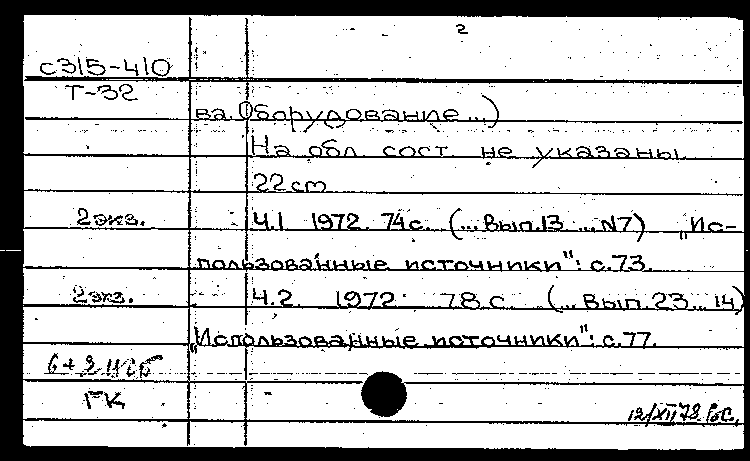 2
с315-410
Т-32
ва. Оборудование...)
На обл. сост. не указаны
22 cm
2 экз. Ч.1 1972. 74 с. (... Вып.13 ... N7) „Ис-
пользованные источники": с.73.
2 экз. Ч.2. 1972. 78 с. (... Вып. 23 ... 14)
„Использованные источники": с.77.
6+2
ГК
12/XII 78